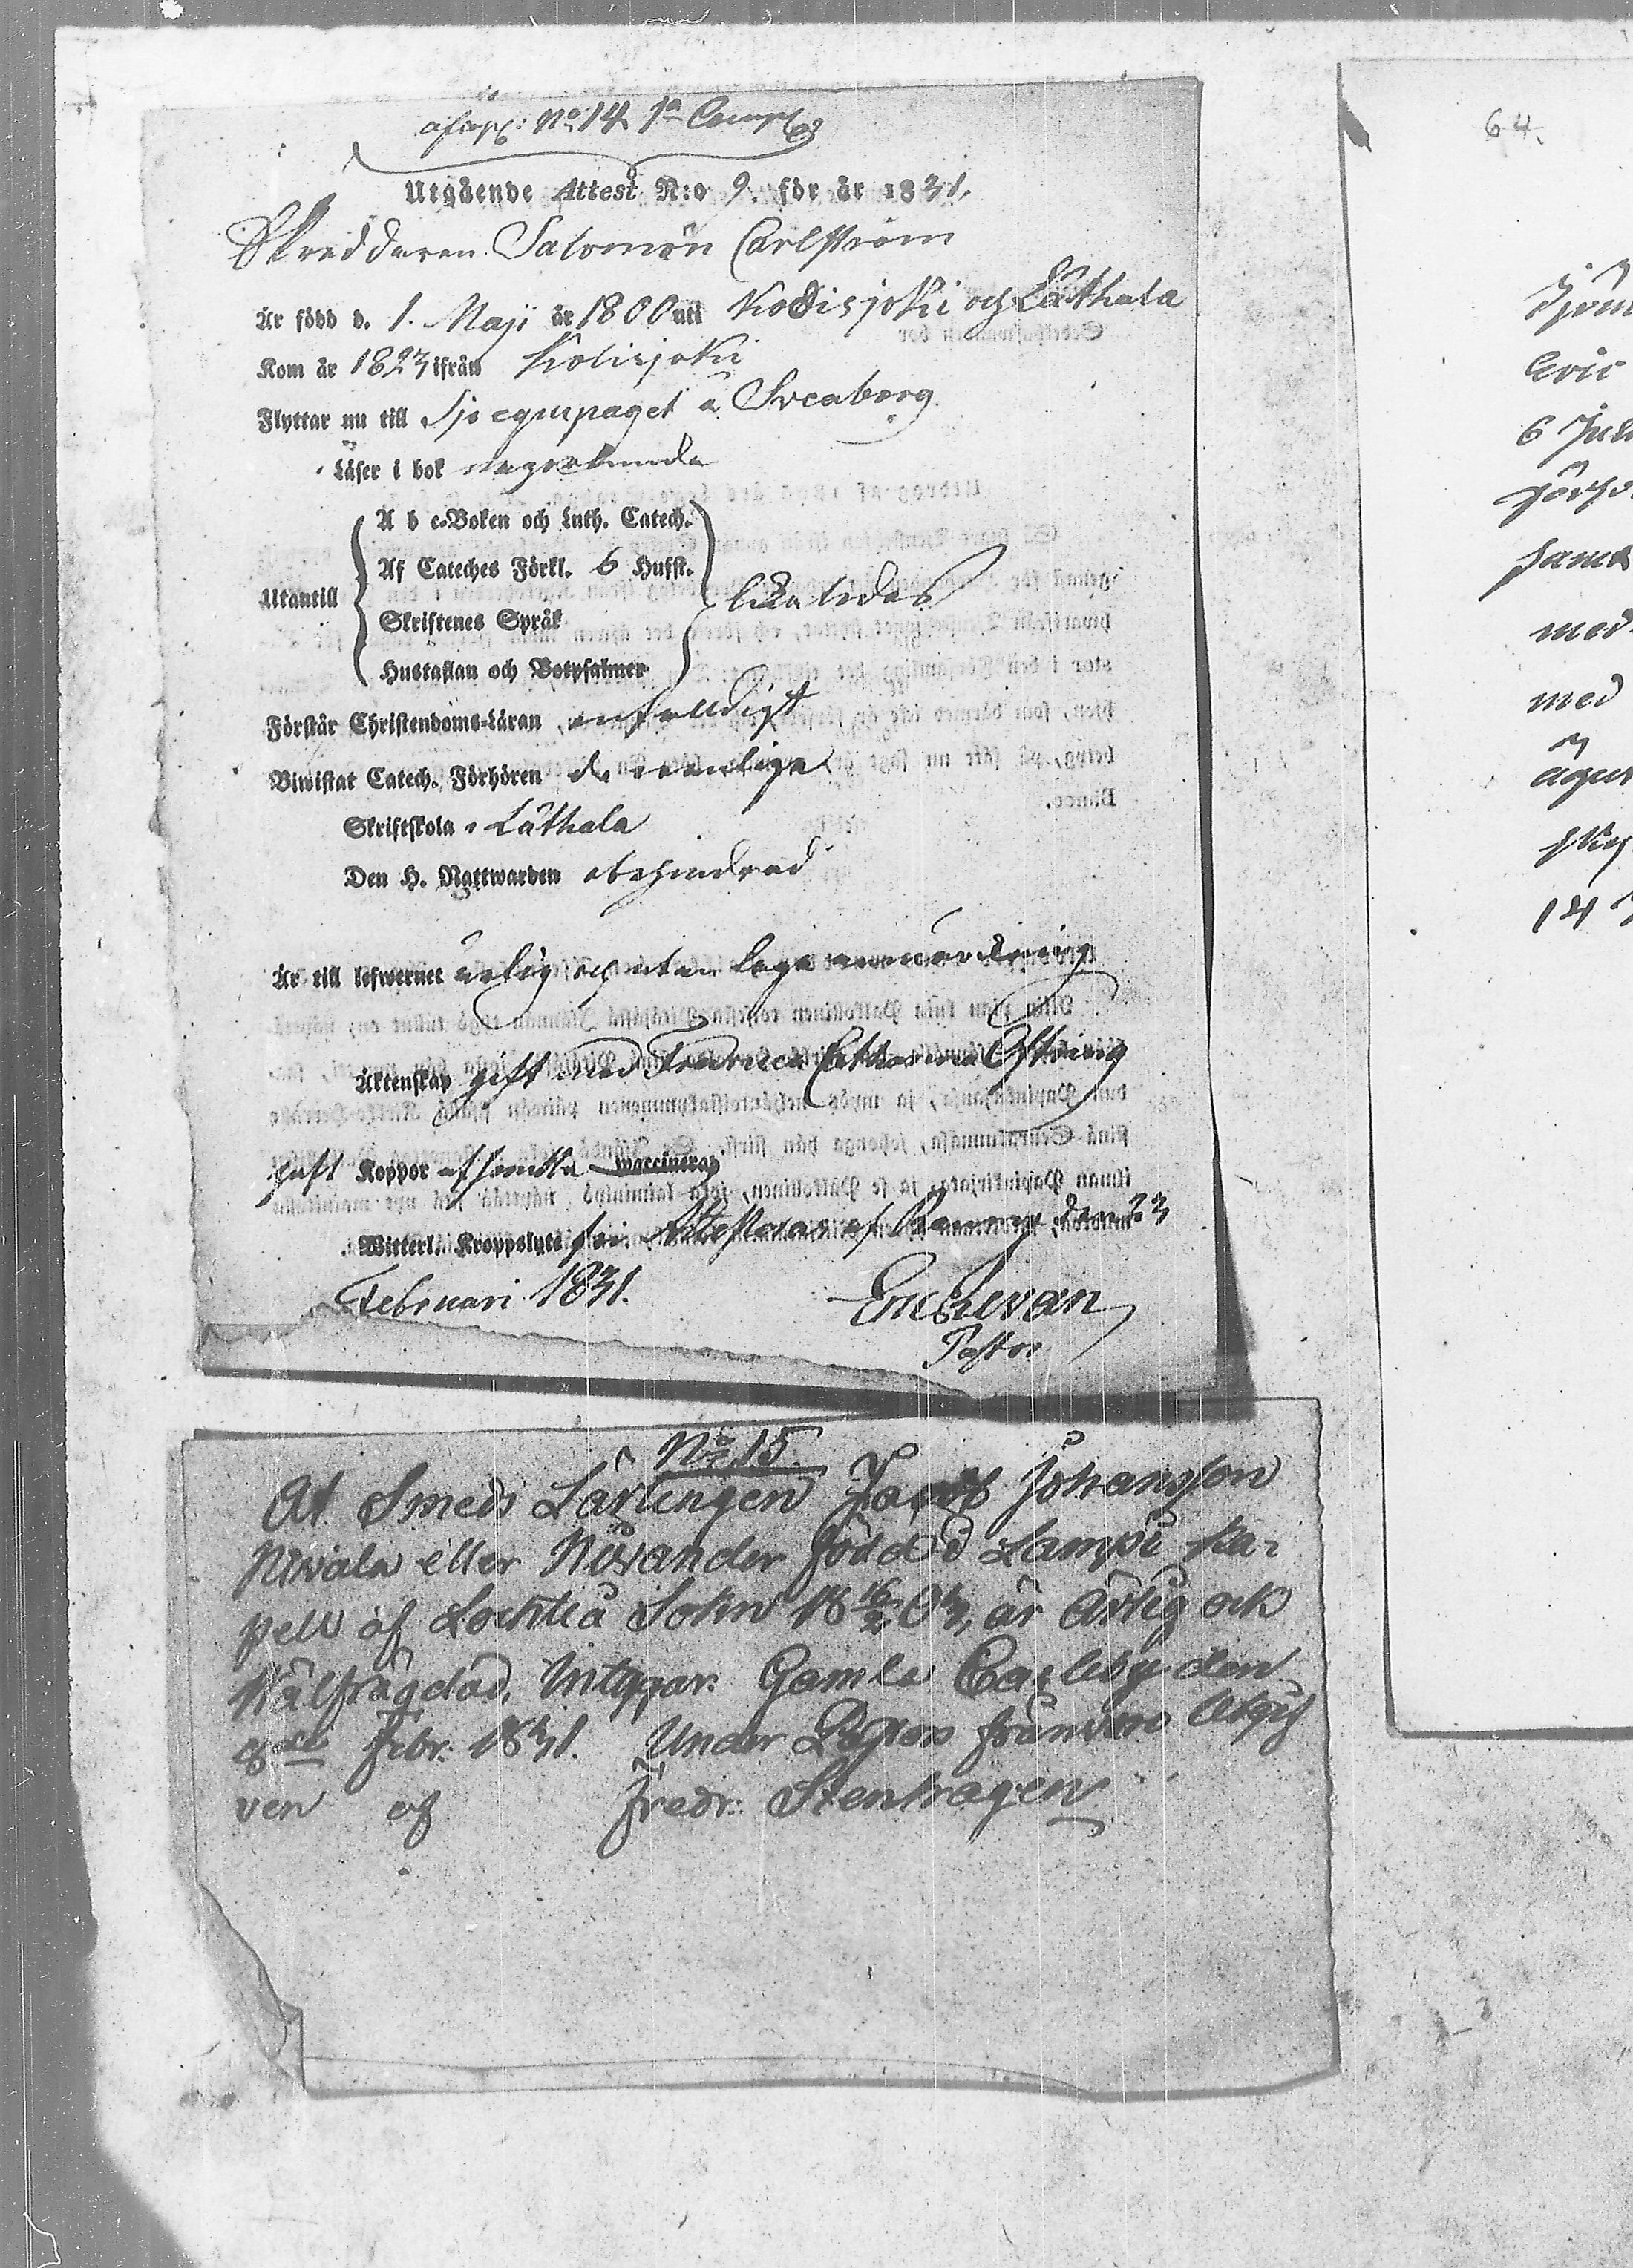 No 14 1a Comp
Utgående Attest N:o 9. för år 1831.
Skreddaren Salomon Carlström
Är född d. 1. Maji år 1800 uti Kodisjoki och Läthala
Kom år 1823 ifrån Kodisjoki
Flyttar nu till Sjö equipaget å Sveaborg
Läser i bok någorlunda
Utantill
A b c-Boken och Luth. Catech.
Af Cateches Förkl. 6 Hufst.
Skriftenes Språk
Hustaflan och Botpsalmer
Förstår Christendoms-Läran enfalldigt
Biwistat Catech. Förhören de vanliga
Skriftskola i Läthala
Den H. Nattwarden obehindrad
Är till lefwernet ärlig och utan laga anmärkning
Äktenskap gift med Fredrica Catharina
haft Koppor waccinerag
Witterl. Kroppslyte fri Attesteras af Raumo den 23
Februari 1831.
Eric Levan
Pastor
No 15.
At Smeds Lärlingen Jacob Johansson
Nivala eller Nivander född i Lampi ka-
pell af Lochteå Sokn 18 16/2 03, är Ärlig och
Välfrägdad, Intygar. Gamla Carleby den
Febr. 1831. Under Pastors frånvaro Utgif
ven af Fredr: Stenhagen
64.
Eric
6 Juli
med
med
14